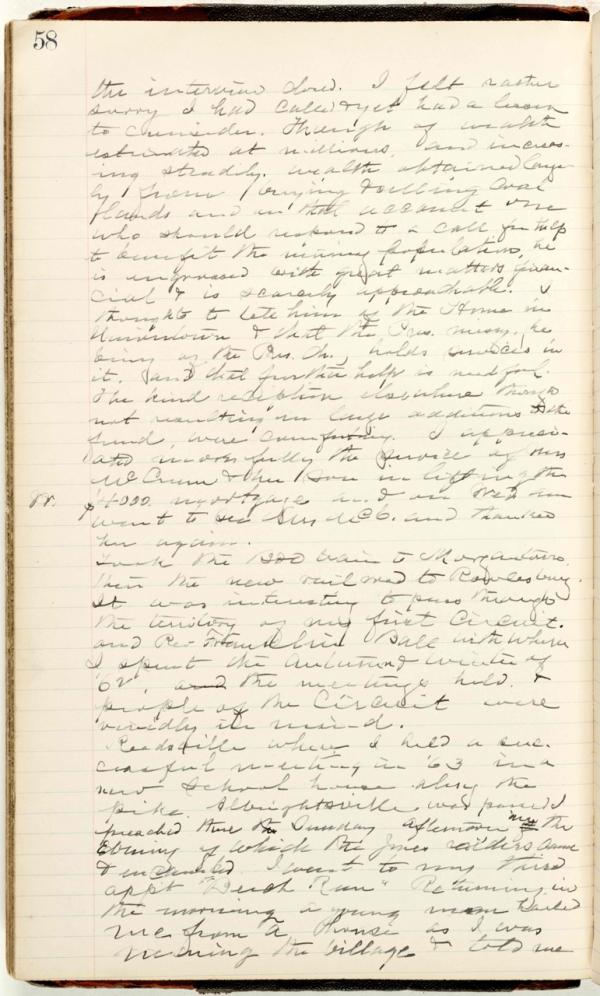 58
the interview closed. I felt rather
sorry I had called & yet had a lesson
to consider. Though of wealth
estimated at millions, and increas-
ing steadily. wealth obtained large-
ly from buying & selling Coal
lands and on that account one
who should respond to a call for help
to benefit the mining population, he
is engrossed with great matters finan-
cial & is scarcely approachable. I
thought to tell him of the Home in
Uniontown & that the Pres. he
being of the Pres. Ch., holds services in
it. and that further help is needful.
The kind reception elsewhere though
not resulting in large additions to the
fund, were comforting. I appreci-
ated more fully the service of Mrs
McCrum & her Son in lifting the
$4000 mortgage and on
went to see Mrs McC. and thanked
her again.
Took the train to Morgantown.
then the new rail road to Rowlesburg.
It was interesting to pass through
the territory of my first Circuit.
and Rev Franklin Ball with whom
I spent the Autumn & winter of
'62, and the meetings held. &
people of the Circuit were
vividly in mind.
Reedsville where I held a suc-
cessful meeting in '63 in a
new School house along the
pike. Albrightsville was passed. I
preached there the Sunday afternoon in the
evening of which the Jones raiders came
& I went to my third
appt Run" Returning in
the morning a young man hailed
me from a house as I was
nearing the village & told me